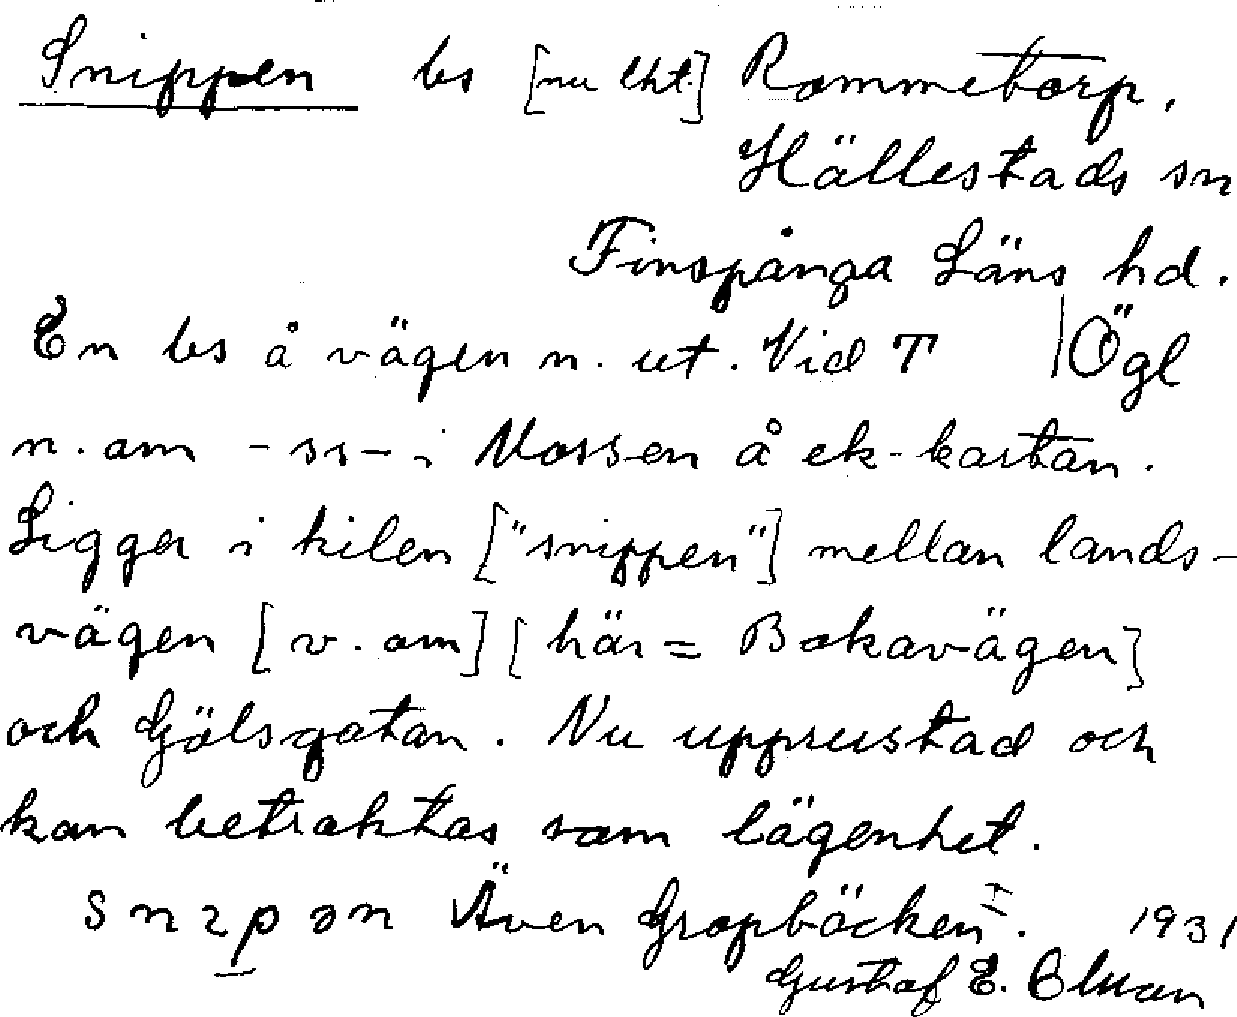 Snippen bs [nu lht.] Rommetorp,
Hällestads sn
Finspånga Läns hd.
En bs å vägen n. ut. Vid T | Ögl
n. om - ss - i Mossen å ek-kartan.
Ligger i kilen ["snippen"] mellan lands-
vägen [v. om] [här = Bokavägen]
och Gölsgatan. Nu upprustad och
kan betraktas som lägenhet.
Även Gropbäcken I. 1931
Gustaf E.